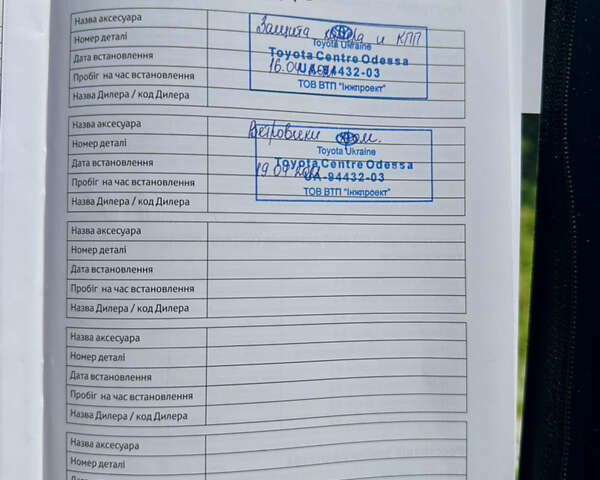 Назва аксесуара
Защита и КПП
Номер деталі
Toyota Ukraine
Дата встановлення
Toyota Centre Odessa
Пробіг на час встановлення
UA-94432-03
Назва Дилера / код Дилера
ТОВ ВТП "Інжпроект"
Назва аксесуара
Ветровики
Номер деталі
Toyota Ukraine
Дата встановлення
Toyota Centre Odessa
Пробіг на час встановлення
UA-94432-03
Назва Дилера / код Дилера
ТОВ ВТП "Інжпроект"
Назва аксесуара
Номер деталі
Дата встановлення
Пробіг на час встановлення
Назва Дилера / код Дилера
Назва аксесуара
Номер деталі
Дата встановлення
Пробіг на час встановлення
Назва Дилера / код Дилера
Назва аксесуара
Номер деталі